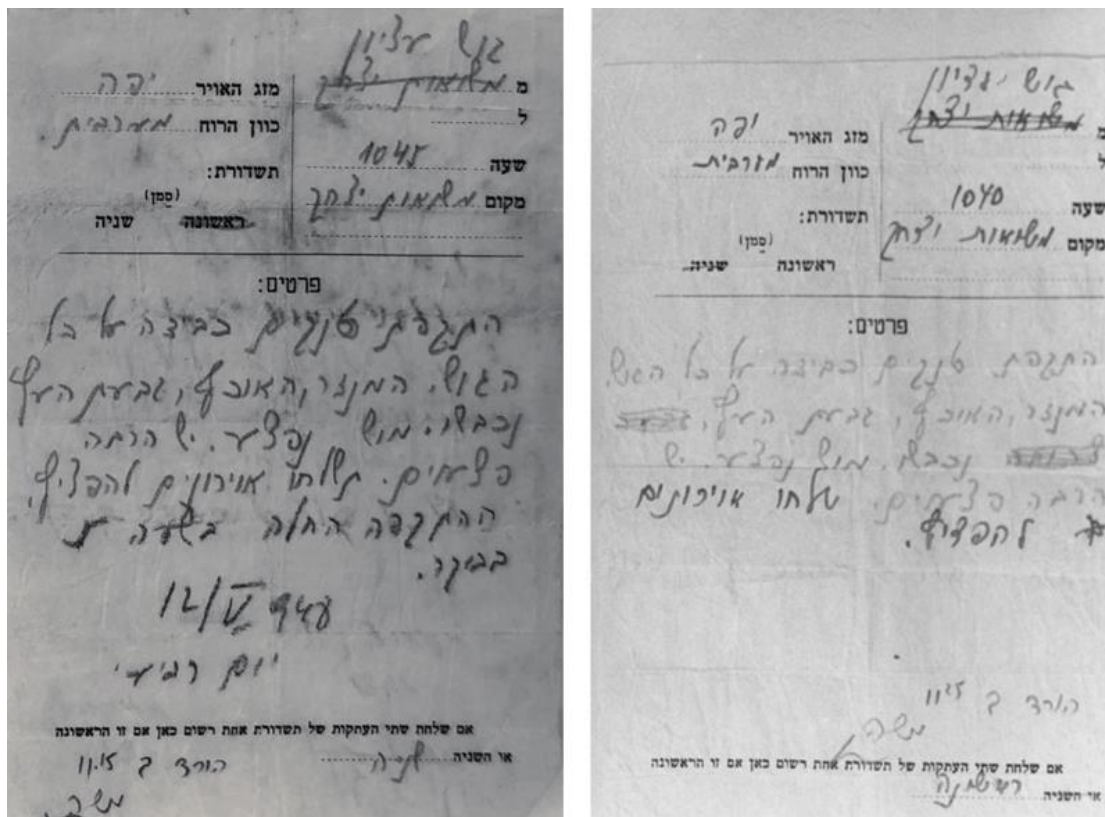 גוש עציון
מ משואות יצחק
ל
שעה 1045
מקום משואות יצחק
מזג האויר יפה
כוון הרוח מערבית
תשדורת:
(סמן)
ראשונה שניה
פרטים:
התקפת טנקים כבידה על כל
הגוש. המנזר, האוכף, גבעת העץ
נכבשו. מוש נפצע. יש הרבה
פצעים. תשלחו אוירונים להפציץ,
ההתקפה החלה בשעה 5
בבוקר.
12/V
יום רביעי
אם שלחת שתי העתקות של תשדורת אחת רשום כאן אם זו הראשונה
או השניה שניה
הורד ב 11.15
משה
גוש עציון
מ משואות יצחק
ל
שעה 1040
מקום משואות יצחק
מזג האויר יפה
כוון הרוח מערבית
תשדורת:
(סמן)
ראשונה שניה
פרטים:
התקפת טנקים כבידה על כל הגוש.
המנזר, האוכף, גבעת העץ,
נכבשו. מוש נפצע. יש
הרבה פצעים. שלחו אוירונים
להפציץ.
הורד ב 11.15
משה
אם שלחת שתי העתקות של תשדורת אחת רשום כאן אם זו הראשונה
או השניה ראשונה